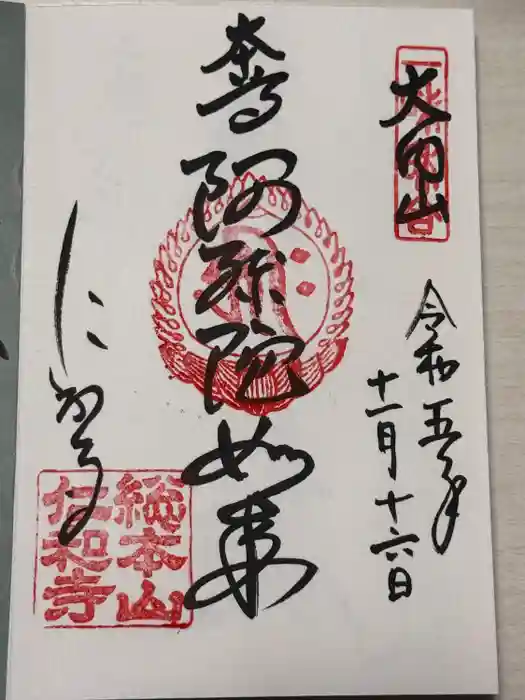 大内山
令和五年
十一月十六日
本尊
阿弥陀如来
にわうち
総本山
仁和寺